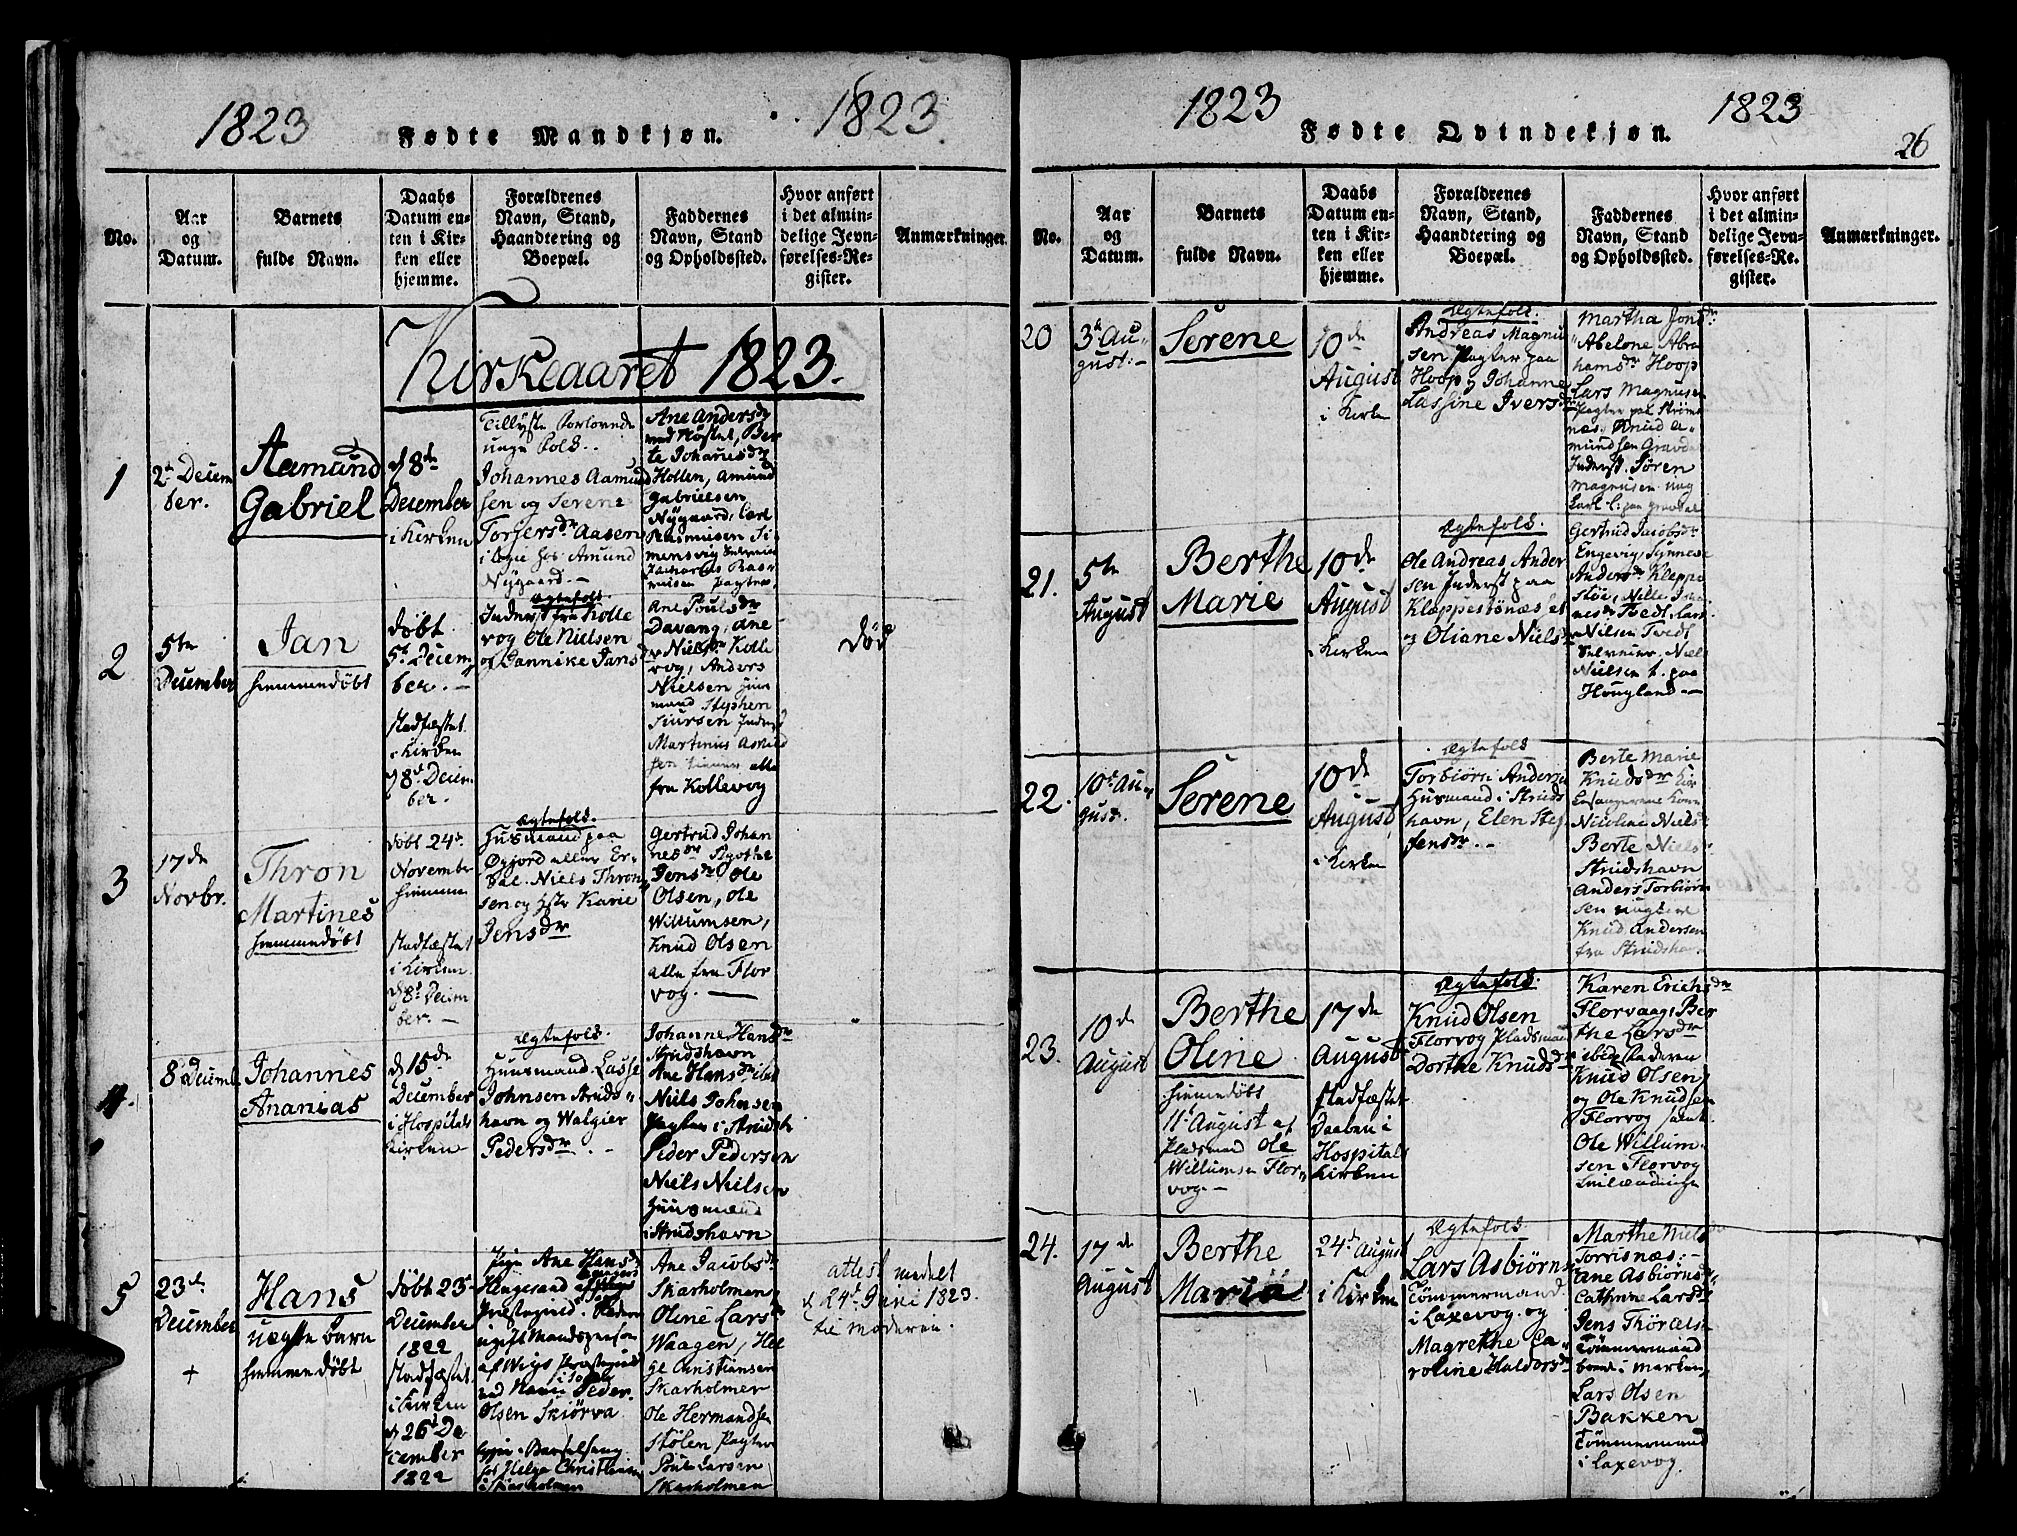 1823 Fødte Mandkjøn. 1823
No.
Aar
og
Datum.
Barnets
fulde Navn.
Daabs
Datum en-
ten i Kir-
ken eller
hjemme.
Forældrenes
Navn, Stand,
Haandtering og
Boepæl.
Faddernes
Navn, Stand
og Opholdssted.
Hvor anført
i det almin-
delige Jevn-
førelses-Re-
gister.
Anmærkninger.
Kirkeaaret 1823.
1
2d Decem
ber.
Aamund
Gabriel
d 8de
December
i Kirken
Tillyste Forlovede
unge Folk.
Johannes Aamund
sen og Serene
Torgersdr Aasen
i Leie hos Amund
Nygaard.
Ane Andersdr
ved Kostet, Ber
te Johanesdr
Hollen, Amund
Gabrielsen
Nygaard, Carl
Rasmusen Si
mensvig
Zacharias Ras
musen Pagter
2
5te
December
Jan
hiemmedøbt
døbt
5t Decem
ber. -
stadfæstet
i Kirken
d 8d Decem
ber.
Ægtefolk.
Inderst fra Kolle
vog Ole Nielsen
og Dannike Jansdr
Ane Poulsdr
Davang, Ane
Nielsdr Kolle
vog, Anders
Nielsen
mand Stephen
Siursen Inderst
Martinus Asmund
sen alle
fra Kollevog
Død
3
17de
Novbr.
Thron
Martines
hiemmedøbt
døbt 24de
November
hiemme
stadfæstet
i Kirken
d 8d Decem
ber. -
Ægtefolk.
Huusmand paa
Øgjord eller Er-
dal Niels Thron
sen og Hstr Karie
Jensdr
Gertrud Johan
nesdr Agothe
Jensdr, Ole
Olsen, Ole
Willumsen,
Knud Olsen
alle fra Flor
vog. -
4.
8 Decemb.
Johannes
Ananias
d 15de
December
i Hospitals
Kirken
Ægtefolk.
Huusmand Lasse
Johnsen Struds-
havn og Walgier
Pedersdr. -
Johanne Hansdr
Strudshavn
Ane Hansdr ibid
Niels Johnsen
Pagter i Strudsh
Peder Pedersen
Niels Nielsen
Huusmænd
i Strudshavn
5
23de
December
+
Hans
uægte barn
hiemmedøbt
døbt 23de
December
1822
stadfæstet
i Kirken
d 26d De
cember
1822
Pige Ane Hansdr
Præstegield.
ugift Mandsperson
af Wigs Præstegield
i Sogn
ved Navn Peder
Olsen Skiørva
hos Helge Christiansen
i Skarholmen
Ane Jacobsdr
Skarholmen,
Oline Larsdr
Waagen, Hel
ge Christiansen
Skarholmen
Ole Hermandsen
Stølen Pagter
Poul Larsen
Skarholmen
attest meddelt
d 24d Juni 1823.
til moderen.
1823 Fødte Qvindekjøn. 1823
26
No.
Aar
og
Datum.
Barnets
fulde Navn.
Daabs
Datum en-
ten i Kir-
ken eller
hjemme.
Forældrenes
Navn, Stand,
Haandtering og
Boepæl.
Faddernes
Navn, Stand
og Opholdssted.
Hvor anført
i det almin-
delige Jevn-
førelses-Re-
gister.
Anmærkninger.
20
3d Au-
gust. -
Serene
10de
August
i Kirken
Ægtefolk.
Andreas Magnu
sen Pagter paa
Hoop og Johanne
Lassine Iversdr
Martha Jonsdr
Abelone Abra
hamsdr Hoop
Lars Magnusen
Pagter paa Strøm
næs, Knud A-
mundsen Gravdal
Inderst. Søren
Magnusen ung
Karl t: paa Gravdal
21.
5te
August
Berthe
Marie
10de
August
i Kirken
Ægtefolk.
Ole Andreas Ander
sen Inderst paa
Klappestønæset
og Oliane Nielsdr
Gertrud Jacobsdr
Engevig, Synneve
Andersdr Kleppe
støe, Nille Joha
nesdr Tvedt, Lars
Nielsen Tvedt
Selveier, Niels
Nielsen t. paa
Hougland. -
22.
10d Au-
gust.
Serene
10de
August
i Kirken
Ægtefolk
Torbiørn Andersen
Huusmand i Struds
havn, Elen Stef
fensdr. -
Berte Marie
Knudsdr
Nicoline Nielsdr
Berte Nielsdr
Strudshavn
Anders Torbiørn
sen
Knud Andersen
fra Strudshavn
23.
10de
August
Berthe
Oline
hiemmedøbt
11t August af
Pladsmand Ole
Willumsen Flor
vog. -
17de
August
stadfæstet
Daaben i
Hospitals
Kirken
Ægtefolk.
Knud Olsen
Florvog Pladsmand
Dorthe Knudsdr
Karen Erichsdr
Florvaag, Ber
the Larsdr
ibid,
Knud Olsen
og Ole Knudsen
Florvog samt
Ole Willum-
sen Florvog
24.
17de
August
Berthe
Maria
24d August
i Kirken
Ægtefolk.
Lars Asbiørns
Tømmermand
i Laxevog. og
Magrethe Ca-
roline Haldorsdr
Marthe Nielsdr
Torrisnæs. -
Ane Asbiørnsdr
Cathrine Larsdr
Jens Thorælsen
Tømmermand
boende i Marken,
Lars Olsen
Bakken
Tømmermand
i Laxevog.